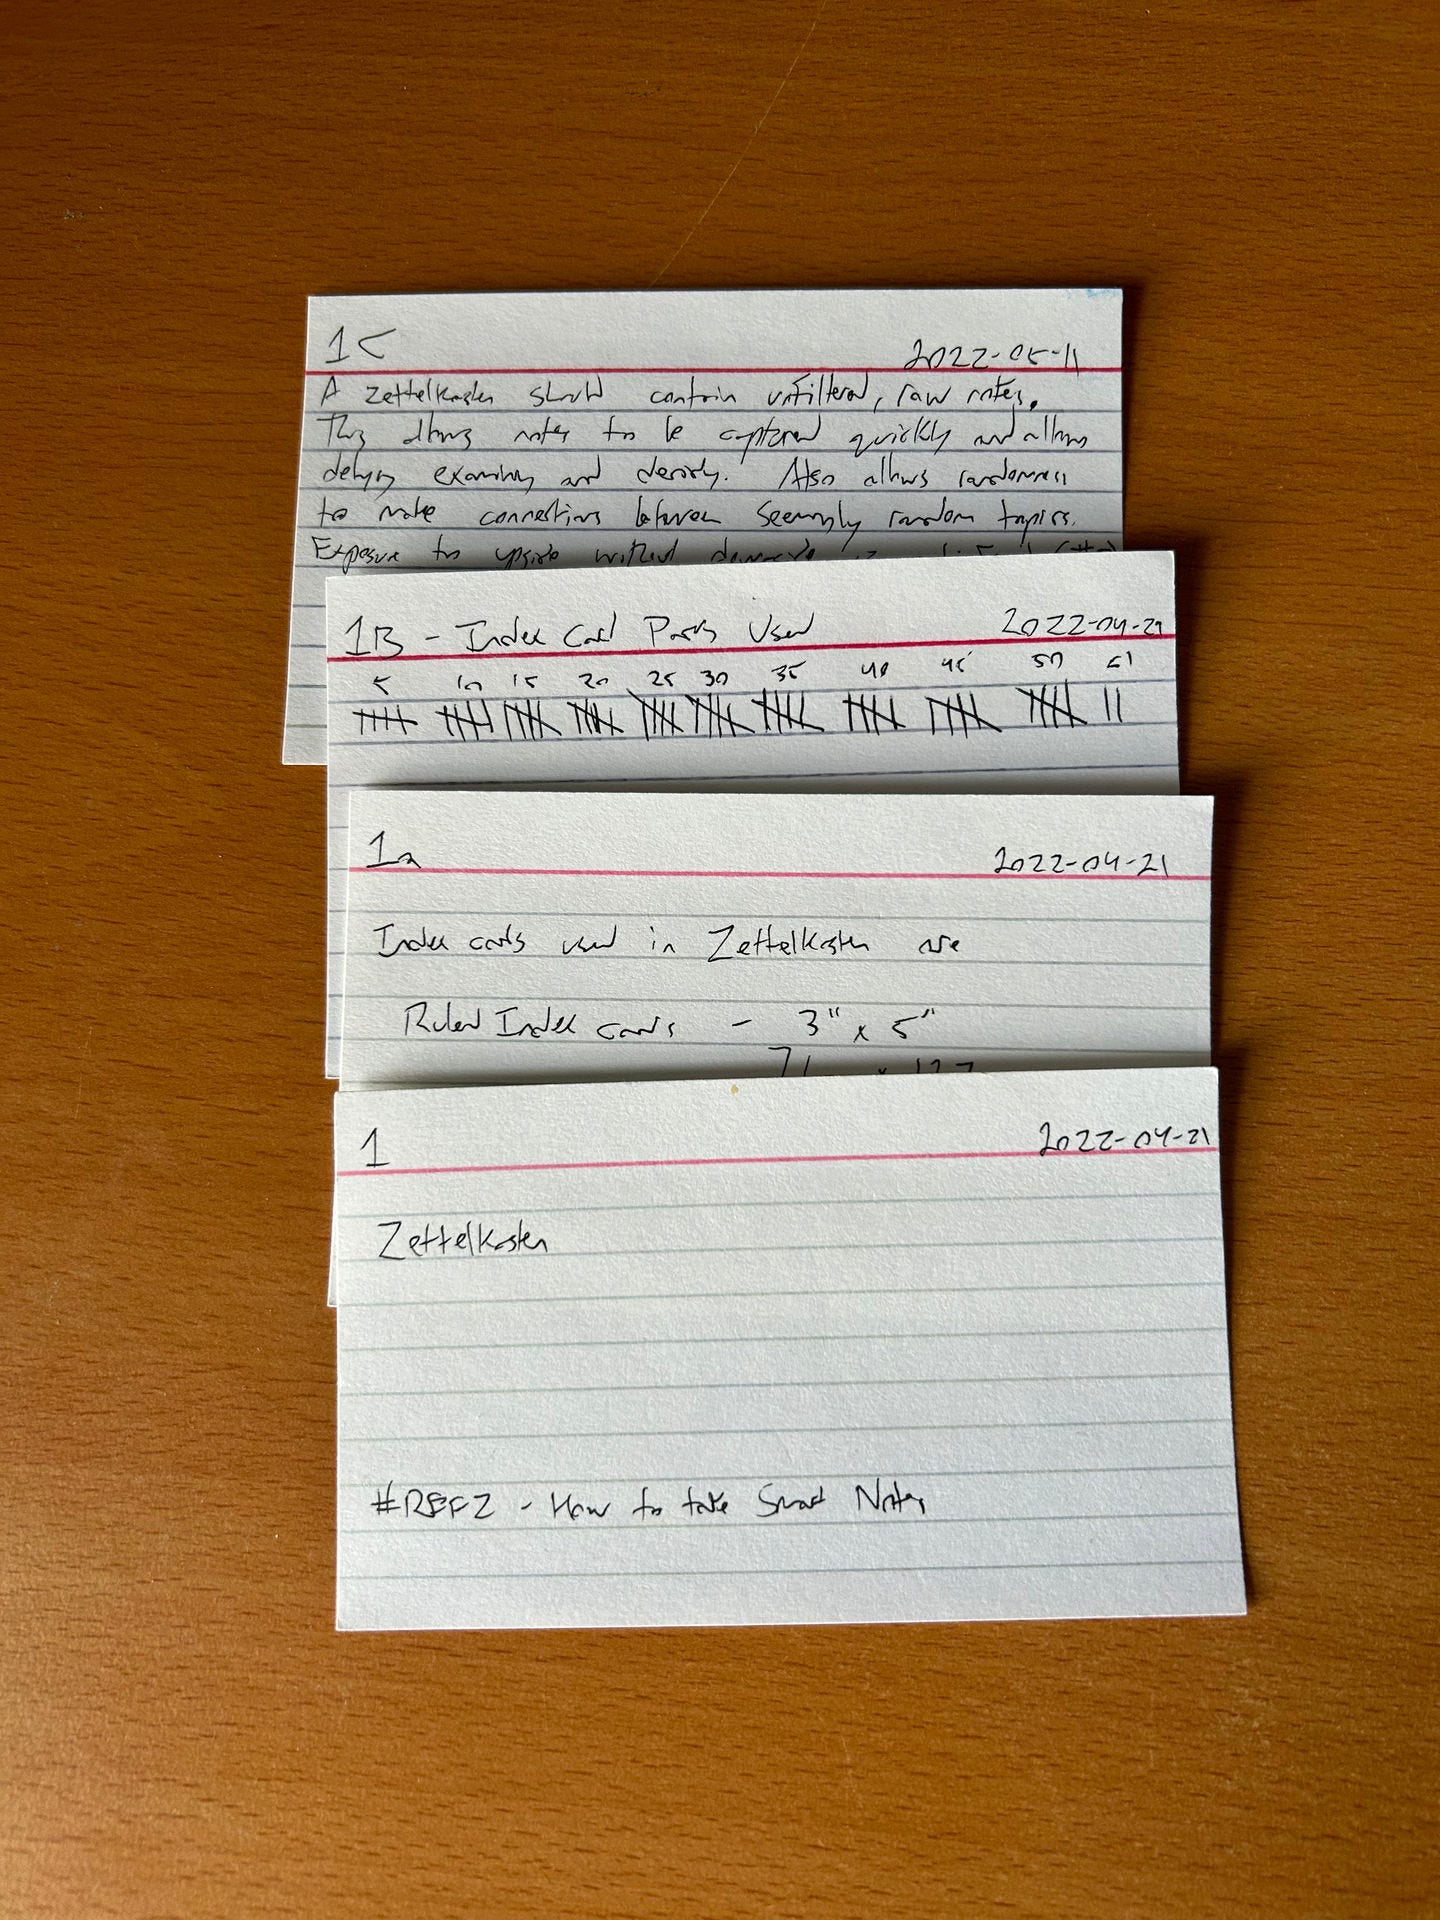 1C 2022-05-11
A Zettelkasten should contain unfiltered, raw notes.
This allows notes to be captured quickly and allows
delaying examining and density. Also allows randomness
to make connections between seemingly random topics.
Exposure to upside without downside
1B - Index Card Packs Used 2022-04-29
5 10 15 20 25 30 35 40 45 50 51
1a 2022-04-21
Index cards used in Zettelkasten are
Ruled Index cards - 3" x 5"
1 2022-04-21
Zettelkasten
#REF2 - How to take Smart Notes